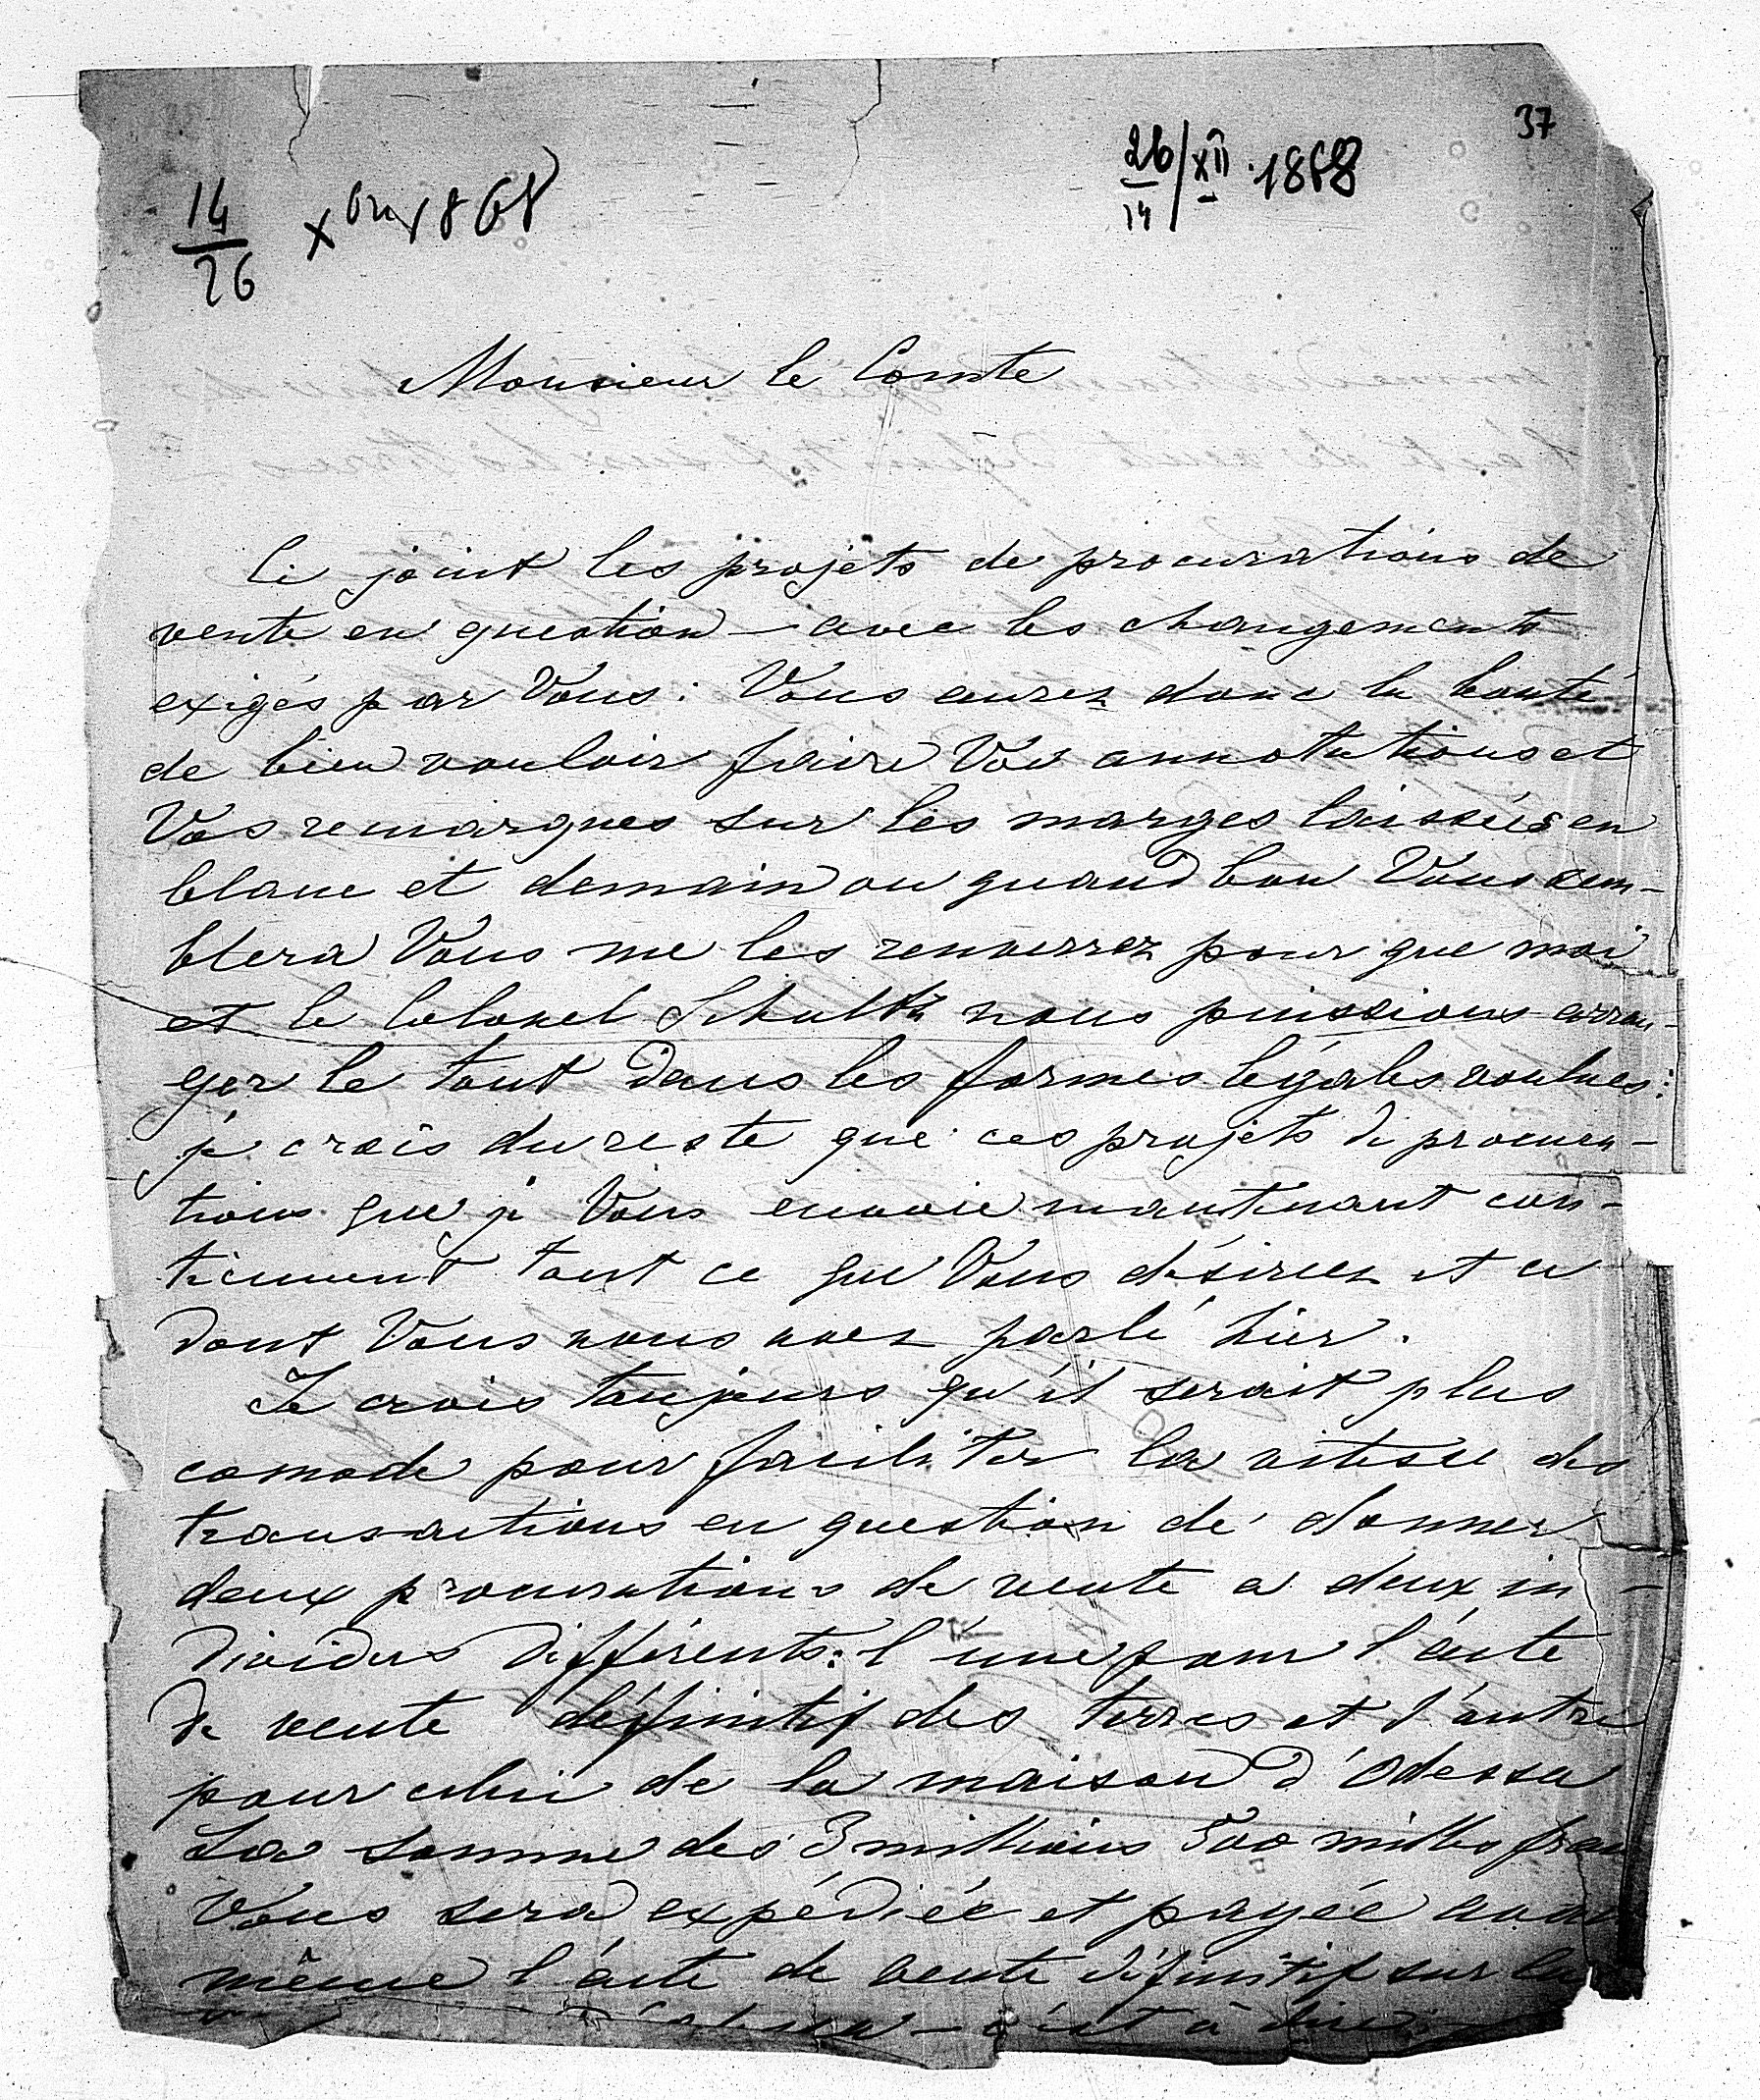 37
14/26 Xbre 1868
26/14 / XII . 1868
Monsieur le Comte
Ci joint les projets de procurations de
vente en question – avec les changements
exigés par Vous: Vous aurez donc la bonté
de bien vouloir faire Vos annotations et
Vos remarques sur les marges laissées en
blanc et demain ou quand bon Vous sem-
blera Vous me les renverrez pour que moi
et le Colonel Schultz nous puissions arran-
ger le tout dans les formes légales voulues:
je crois du reste que ces projets de procura-
tions que je Vous envoie maintenant con-
tiennent tout ce que Vous désirez et ce
dont Vous nous avez parlé hier.
Je crois toujours qu'il serait plus
comode pour faciliter la vitesse des
transactions en question de donner
deux procurations de vente a deux in-
dividus différents: l'une pour l'acte
de vente définitif des terres et l'autre
pour celui de la maison d'Odessa
La somme des 3 millions 500 milles fran
Vous sera expédiée et payée avant
même l'acte de vente définitif sur la
– c'est à dire